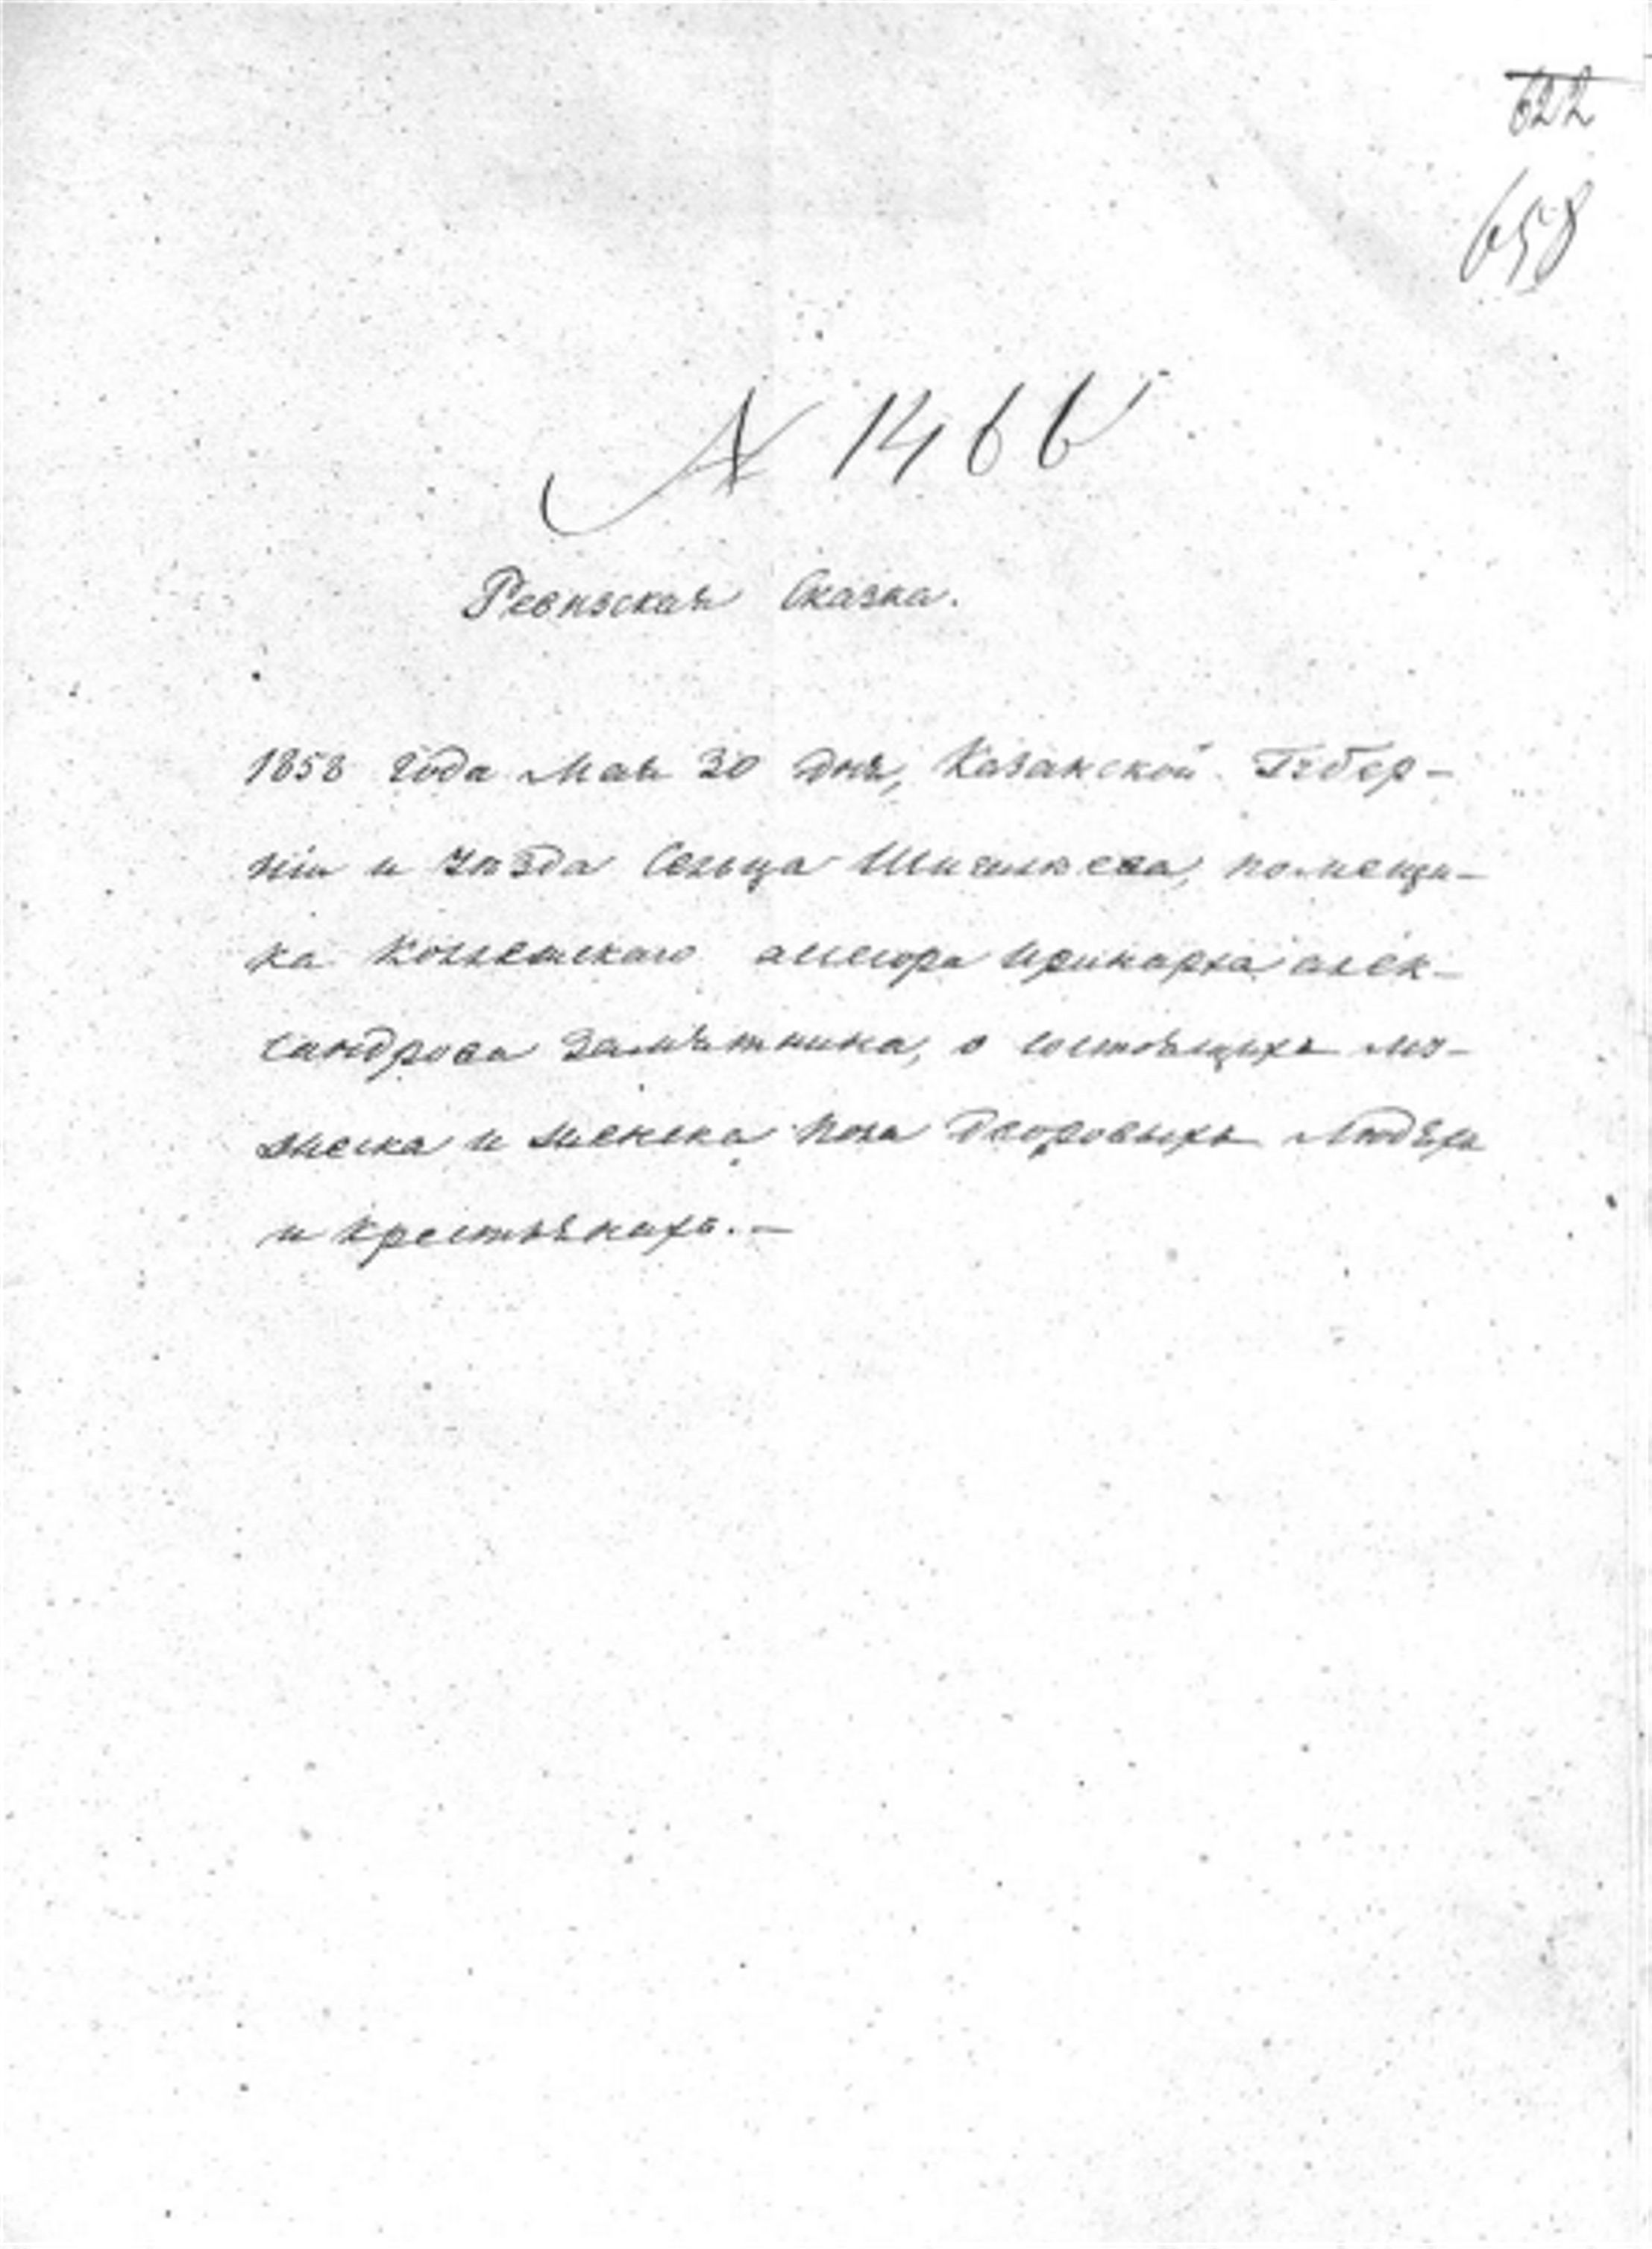 622
658
№ 1466
Ревизская Сказка.
1858 года Мая 30 дня, Казанской Губер-
ніи и Уѣзда Сельца Шигалеева, помещи-
ка Коллежскаго ассесора Иринарха алек-
сандрова Замятнина, о состоящихъ му-
жеска и женска пола Дворовыхъ Людяхъ
и Крестьянахъ. —